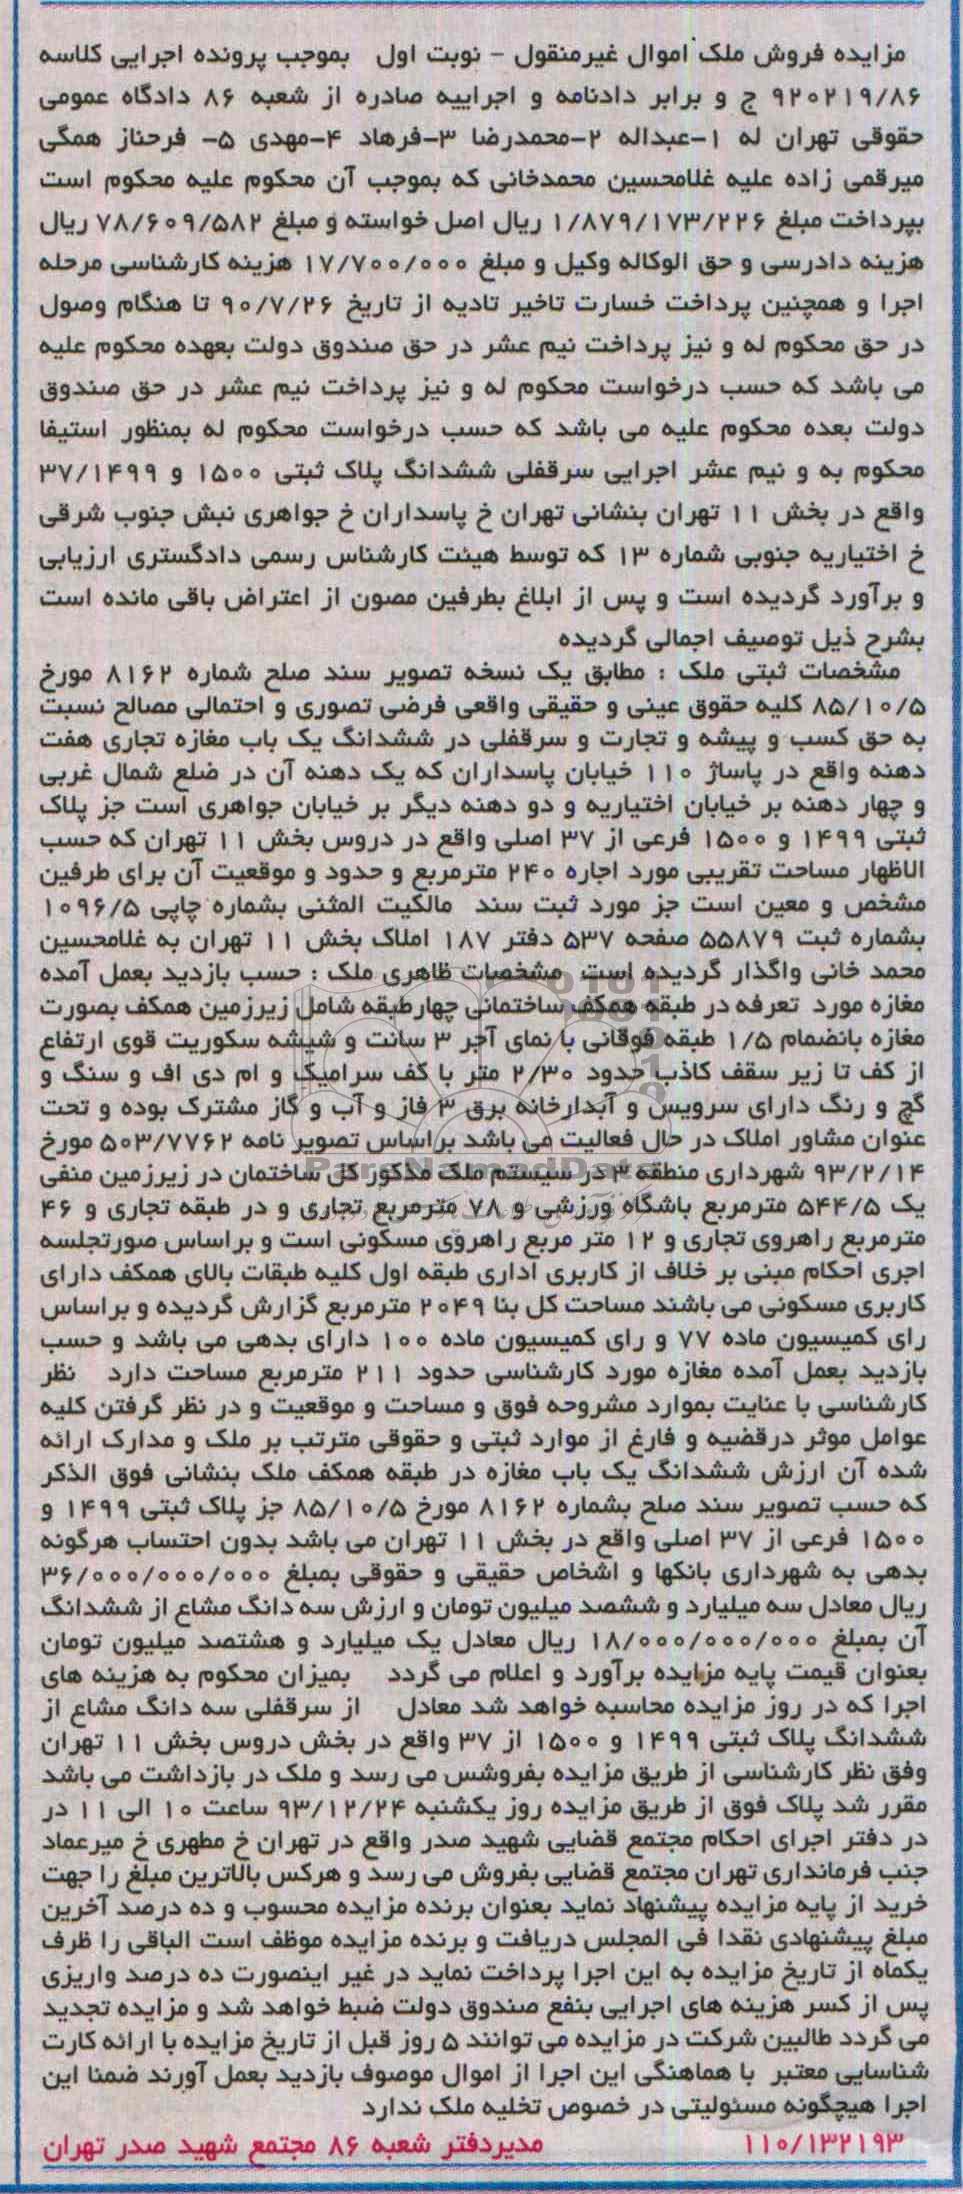 مزایده فروش ملک اموال غیرمنقول - نوبت اول بموجب پرونده اجرایی کلاسه
۹۲۰۲۱۹/۸۶ ج و برابر دادنامه و اجراییه صادره از شعبه ۸۶ دادگاه عمومی
حقوقی تهران له ۱-عبداله ۲-محمدرضا ۳-فرهاد ۴-مهدی ۵- فرحناز همگی
میرقمی زاده علیه غلامحسین محمدخانی که بموجب آن محکوم علیه محکوم است
بپرداخت مبلغ ۱/۸۷۹/۱۷۳/۲۲۶ ریال اصل خواسته و مبلغ ۷۸/۶۰۹/۵۸۲ ریال
هزینه دادرسی و حق الوکاله وکیل و مبلغ ۱۷/۷۰۰/۰۰۰ هزینه کارشناسی مرحله
اجرا و همچنین پرداخت خسارت تاخیر تادیه از تاریخ ۹۰/۷/۲۶ تا هنگام وصول
در حق محکوم له و نیز پرداخت نیم عشر در حق صندوق دولت بعهده محکوم علیه
می باشد که حسب درخواست محکوم له و نیز پرداخت نیم عشر در حق صندوق
دولت بعده محکوم علیه می باشد که حسب درخواست محکوم له بمنظور استیفا
محکوم به و نیم عشر اجرایی سرقفلی ششدانگ پلاک ثبتی ۱۵۰۰ و ۳۷/۱۴۹۹
واقع در بخش ۱۱ تهران بنشانی تهران خ پاسداران خ جواهری نبش جنوب شرقی
خ اختیاریه جنوبی شماره ۱۳ که توسط هیئت کارشناس رسمی دادگستری ارزیابی
و برآورد گردیده است و پس از ابلاغ بطرفین مصون از اعتراض باقی مانده است
بشرح ذیل توصیف اجمالی گردیده
مشخصات ثبتی ملک : مطابق یک نسخه تصویر سند صلح شماره ۸۱۶۲ مورخ
۸۵/۱۰/۵ کلیه حقوق عینی و حقیقی واقعی فرضی تصوری و احتمالی مصالح نسبت
به حق کسب و پیشه و تجارت و سرقفلی در ششدانگ یک باب مغازه تجاری هفت
دهنه واقع در پاساژ ۱۱۰ خیابان پاسداران که یک دهنه آن در ضلع شمال غربی
و چهار دهنه بر خیابان اختیاریه و دو دهنه دیگر بر خیابان جواهری است جز پلاک
ثبتی ۱۴۹۹ و ۱۵۰۰ فرعی از ۳۷ اصلی واقع در دروس بخش ۱۱ تهران که حسب
الاظهار مساحت تقریبی مورد اجاره ۲۴۰ مترمربع و حدود و موقعیت آن برای طرفین
مشخص و معین است جز مورد ثبت سند مالکیت المثنی بشماره چاپی ۱۰۹۶/۵
بشماره ثبت ۵۵۸۷۹ صفحه ۵۳۷ دفتر ۱۸۷ املاک بخش ۱۱ تهران به غلامحسین
محمد خانی واگذار گردیده است مشخصات ظاهری ملک : حسب بازدید بعمل آمده
مغازه مورد تعرفه در طبقه همکف ساختمانی چهارطبقه شامل زیرزمین همکف بصورت
مغازه بانضمام ۱/۵ طبقه فوقانی با نمای آجر ۳ سانت و شیشه سکوریت قوی ارتفاع
از کف تا زیر سقف کاذب حدود ۲/۳۰ متر با کف سرامیک و ام دی اف و سنگ و
گچ و رنگ دارای سرویس و آبدارخانه برق ۳ فاز و آب و گاز مشترک بوده و تحت
عنوان مشاور املاک در حال فعالیت می باشد براساس تصویر نامه ۵۰۳/۷۷۶۲ مورخ
۹۳/۲/۱۴ شهرداری منطقه ۳ در سیستم ملک مذکور کل ساختمان در زیرزمین منفی
یک ۵۴۴/۵ مترمربع باشگاه ورزشی و ۷۸ مترمربع تجاری و در طبقه تجاری و ۴۶
مترمربع راهروی تجاری و ۱۲ متر مربع راهروی مسکونی است و براساس صورتجلسه
اجری احکام مبنی بر خلاف از کاربری اداری طبقه اول کلیه طبقات بالای همکف دارای
کاربری مسکونی می باشند مساحت کل بنا ۲۰۴۹ مترمربع گزارش گردیده و براساس
رای کمیسیون ماده ۷۷ و رای کمیسیون ماده ۱۰۰ دارای بدهی می باشد و حسب
بازدید بعمل آمده مغازه مورد کارشناسی حدود ۲۱۱ مترمربع مساحت دارد نظر
کارشناسی با عنایت بموارد مشروحه فوق و مساحت و موقعیت و در نظر گرفتن کلیه
عوامل موثر درقضیه و فارغ از موارد ثبتی و حقوقی مترتب بر ملک و مدارک ارائه
شده آن ارزش ششدانگ یک باب مغازه در طبقه همکف ملک بنشانی فوق الذکر
که حسب تصویر سند صلح بشماره ۸۱۶۲ مورخ ۸۵/۱۰/۵ جز پلاک ثبتی ۱۴۹۹ و
۱۵۰۰ فرعی از ۳۷ اصلی واقع در بخش ۱۱ تهران می باشد بدون احتساب هرگونه
بدهی به شهرداری بانکها و اشخاص حقیقی و حقوقی بمبلغ ۳۶/۰۰۰/۰۰۰/۰۰۰
ریال معادل سه میلیارد و ششصد میلیون تومان و ارزش سه دانگ مشاع از ششدانگ
آن بمبلغ ۱۸/۰۰۰/۰۰۰/۰۰۰ ریال معادل یک میلیارد و هشتصد میلیون تومان
بعنوان قیمت پایه مزایده برآورد و اعلام می گردد بمیزان محکوم به هزینه های
اجرا که در روز مزایده محاسبه خواهد شد معادل از سرقفلی سه دانگ مشاع از
ششدانگ پلاک ثبتی ۱۴۹۹ و ۱۵۰۰ از ۳۷ واقع در بخش دروس بخش ۱۱ تهران
وفق نظر کارشناسی از طریق مزایده بفروشس می رسد و ملک در بازداشت می باشد
مقرر شد پلاک فوق از طریق مزایده روز یکشنبه ۹۳/۱۲/۲۴ ساعت ۱۰ الی ۱۱ در
در دفتر اجرای احکام مجتمع قضایی شهید صدر واقع در تهران خ مطهری خ میرعماد
جنب فرمانداری تهران مجتمع قضایی بفروش می رسد و هرکس بالاترین مبلغ را جهت
خرید از پایه مزایده پیشنهاد نماید بعنوان برنده مزایده محسوب و ده درصد آخرین
مبلغ پیشنهادی نقدا فی المجلس دریافت و برنده مزایده موظف است الباقی را ظرف
یکماه از تاریخ مزایده به این اجرا پرداخت نماید در غیر اینصورت ده درصد واریزی
پس از کسر هزینه های اجرایی بنفع صندوق دولت ضبط خواهد شد و مزایده تجدید
می گردد طالبین شرکت در مزایده می توانند ۵ روز قبل از تاریخ مزایده با ارائه کارت
شناسایی معتبر با هماهنگی این اجرا از اموال موصوف بازدید بعمل آورند ضمنا این
اجرا هیچگونه مسئولیتی در خصوص تخلیه ملک ندارد
۱۱۰/۱۳۲۱۹۳ مدیردفتر شعبه ۸۶ مجتمع شهید صدر تهران